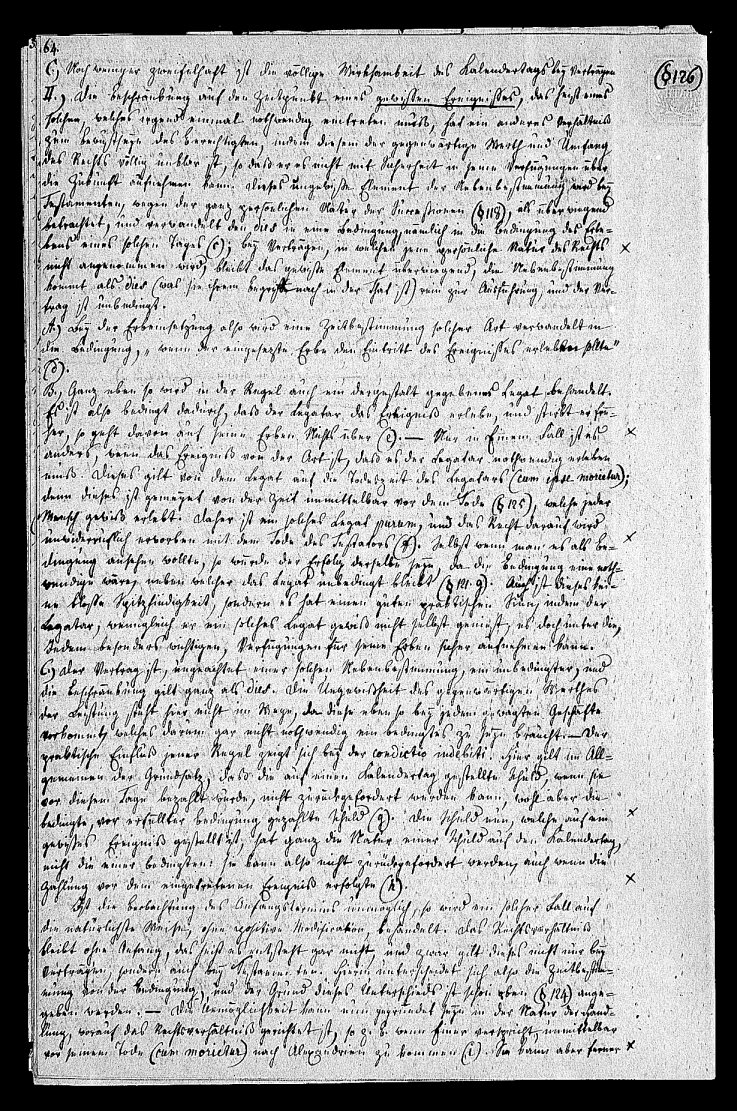 64.
(§ 126)
C.) Noch weniger zweifelhaft ist die völlige Wirksamkeit des Kalendertags bey Verträgen
II.) Die Beschränkung auf den Zeitpunkt eines gewissen Ereignisses, das heist eines
solchen, welches irgend einmal nothwendig eintreten muß, hat ein anderes Verhältniß
zum Bewustseyn des Berechtigten, indem diesem der gegenwärtige Werth und Umfang
des Rechts völlig unklar ist, so daß er es nicht mit Sicherheit in seine Verfügungen über
die Zukunft aufnehmen kann. Dieses ungewisse Element der Nebenbestimmung wird bey
Testamenten, wegen der ganz persönlichen Natur der Successionen (§ 118), als überwiegend
betrachtet, und verwandelt den dies in eine Bedingung, nämlich in die Bedingung des Erle-
bens eines solchen Tages (c); bey Verträgen, in welchen jene persönliche Natur des Rechts
nicht angenommen wird, bleibt das gewisse Element überwiegend, die Nebenbestimmung
kommt als dies (was sie ihrem Begriff nach in der That ist) rein zur Ausführung, und der Ver-
trag ist unbedingt.
A.) Bey der Erbeinsetzung also wird eine Zeitbestimmung solcher Art verwandelt in
die Bedingung, „wenn der eingesetzte Erbe den Eintritt des Ereignisses erleben sollte“
(d).
B.) Ganz eben so wird in der Regel auch ein dergestalt gegebenes Legat behandelt.
Es ist also bedingt dadurch, daß der Legatar das Ereigniß erlebe, und stirbt er frü-
her, so geht davon auf seine Erben Nichts über (e). — Nur in Einem Fall ist es
anders, wenn das Ereigniß von der Art ist, daß es der Legatar nothwendig erleben
muß. Dieses gilt von dem Legat auf die Todeszeit des Legatars (cum ipse morietur);
denn dieses ist gemeynt von der Zeit unmittelbar vor dem Tode (§ 125), welche jeder
Mensch gewiß erlebt. Daher ist ein solches Legat purum, und das Recht darauf wird
unwiderruflich erworben mit dem Tode des Testators (f). Selbst wenn man es als Be-
dingung ansehen wollte, so würde der Erfolg derselbe seyn, da die Bedingung eine noth-
wendige wäre, neben welcher das Legat unbedingt bleibt (§ 121. g). Auch ist dieses kei-
ne bloße Spitzfindigkeit, sondern es hat einen guten praktischen Sinn, indem der
Legatar, wenngleich er ein solches Legat gewiß nicht selbst genießt, es doch unter die,
Jedem besonders wichtigen, Verfügungen für seine Erben sicher aufnehmen kann.
C.) Der Vertrag ist, ungeachtet einer solchen Nebenbestimmung, ein unbedingter, und
die Beschränkung gilt ganz als dies. Die Ungewißheit des gegenwärtigen Werthes
der Leistung steht hier nicht im Wege, da diese ebenso bey jedem gewagten Geschäfte
vorkommt, welches darum gar nicht nothwendig ein bedingtes zu seyn braucht. — Der
praktische Einfluß jener Regel zeigt sich bey der condictio indebiti. Hier gilt im All-
gemeinen der Grundsatz, daß die auf einen Kalendertag gestellte Schuld, wenn sie
vor diesem Tage bezahlt wurde, nicht zurückgefordert werden kann, wohl aber die
bedingte, vor erfüllter Bedingung gezahlte Schuld (g). Die Schuld nun, welche auf ein
gewisses Ereigniß gestellt ist, hat ganz die Natur einer Schuld auf den Kalendertag,
nicht die einer bedingten: sie kann also nicht zurückgefordert werden, auch wenn die
Zahlung vor dem eingetretenen Ereigniß erfolgte (h).
Ist die Beobachtung des Anfangstermins unmöglich, so wird ein solcher Fall auf
die natürlichste Weise, ohne positive Modification, behandelt. Das Rechtsverhältniß
bleibt ohne Anfang, das heist es entsteht gar nicht, und zwar gilt dieses nicht nur bey
Verträgen, sondern auch bey Testamenten. Hierin unterscheidet sich also die Zeitbestim-
mung von der Bedingung, und der Grund dieses Unterschieds ist schon oben (§ 124) ange-
geben worden. — Die Unmöglichkeit kann nun gegründet seyn in der Natur der Hand-
lung, worauf das Rechtsverhältniß gerichtet ist, so z. B. wenn Einer verspricht, unmittelbar
vor seinem Tode (cum morietur) nach Alexandrien zu kommen (i). Sie kann aber ferner